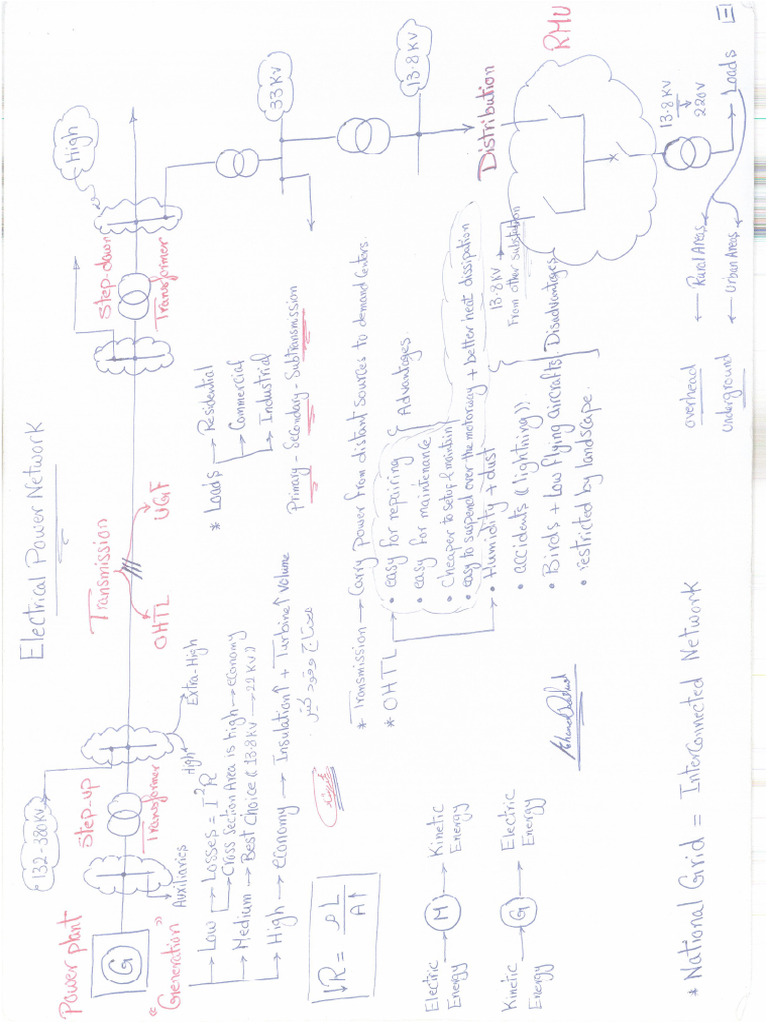 Electrical Power Network
Power plant
G
"Generation"
132-380KV
Step-up
Transformer
Auxiliaries
High
Extra-High
Transmission
OHTL
UGF
Step-down
Transformer
High
33KV
13.8KV
Distribution
RMU
13.8KV
220V
Loads
Rural Areas
Urban Areas
overhead
Underground
13.8KV
From other substation
Low → Losses = I²R
Cross Section Area is high → economy
Medium → Best choice (13.8KV → 22KV)
High → economy → Insulation↑ + Turbine↑ Volume
↓R = ρL / A↑
* Loads
Residential
Commercial
Industrial
Primary - Secondary - Subtransmission
* Transmission → Carry power from distant sources to demand Centers.
* OHTL
• easy for repairing
• easy for maintenance
• Cheaper to setup & maintain
• easy to suspend over the motorway + better heat dissipation
Advantages.
• Humidity + dust
• accidents (lightning)
• Birds + Low flying aircrafts
• restricted by landscape.
Disadvantages.
Electric Energy → M → Kinetic Energy
Kinetic Energy → G → Electric Energy
* National Grid = InterConnected Network